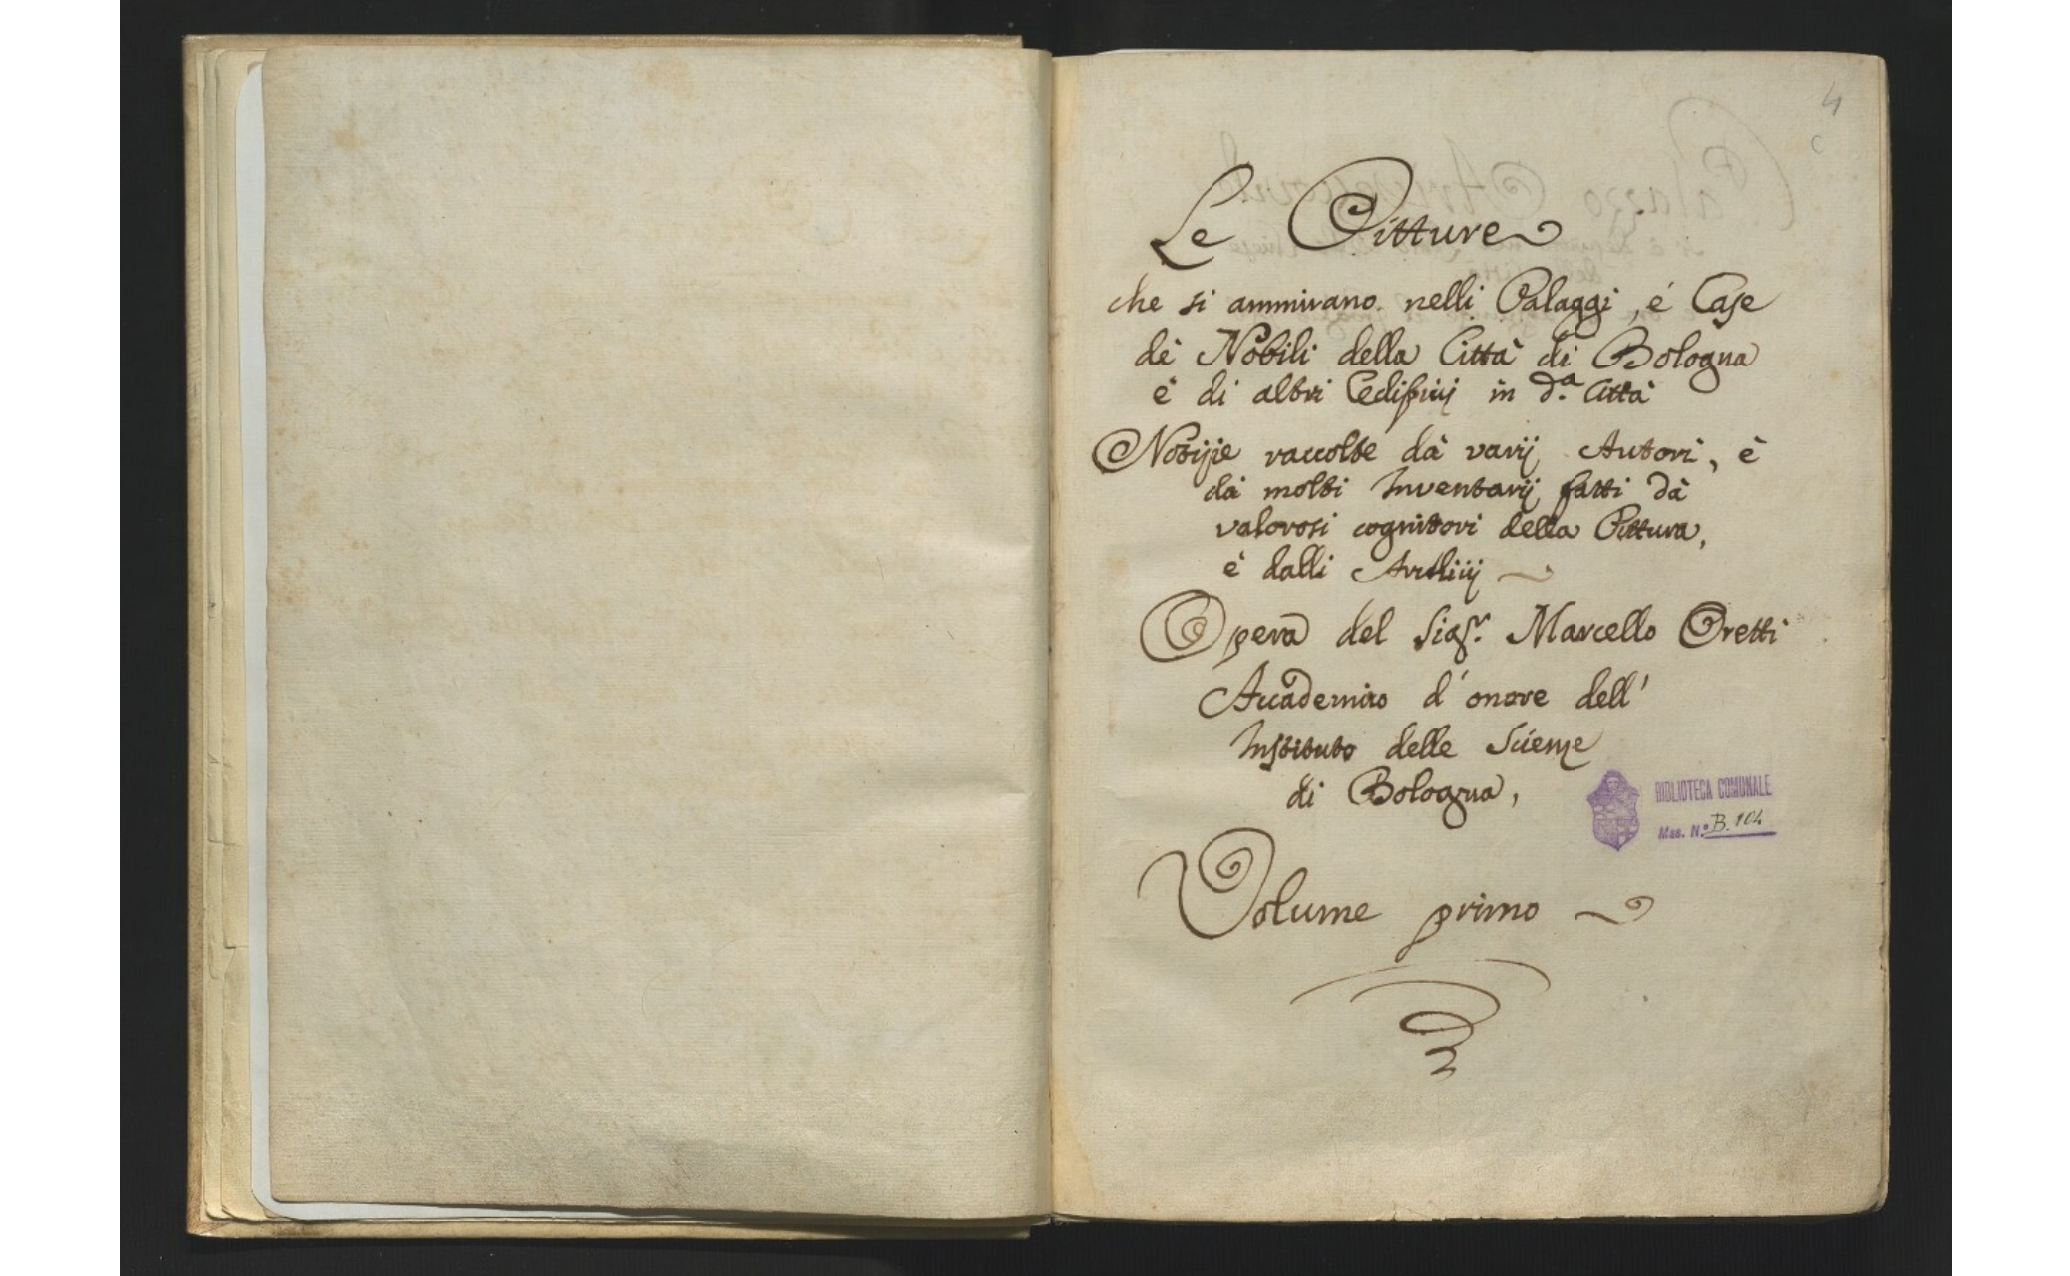 4
c
Le Pitture
che si ammirano nelli Palazzi, é Case
dè Nobili della Città di Bologna
è di altri Edifizij in d.a Città
Notizie raccolte dà varij Autori, è
dà molti Inventarij fatti dà
valorosi cognitori della Pittura,
è dalli Archivij
Opera del Sig.r Marcello Oretti
Accademico d'onore dell'
Instituto delle Scienze
di Bologna,
BIBLIOTECA COMUNALE
Mss. N.º B. 104
Volume primo